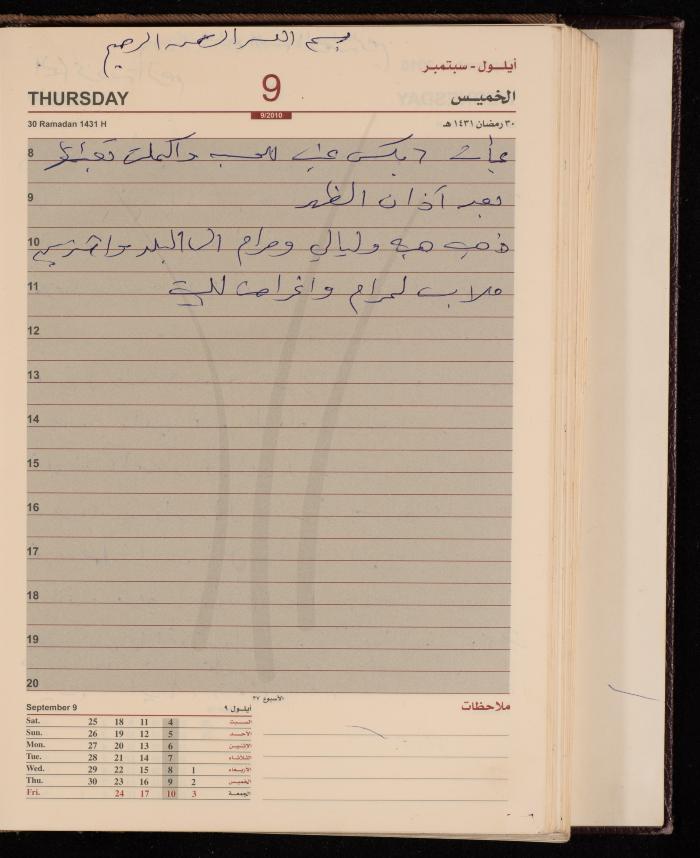 بسم الله الرحمن الرحيم
أيلول - سبتمبر
THURSDAY
9
الخميس
9/2010
30 Ramadan 1431 H
٣٠ رمضان ١٤٣١ هـ
8
عبأت ٢ بكس عنب للحب واكملت
9
بعد آذان الظهر
10
ذهب هبه وليالي ومرام الى البلد
11
ملابس لمرام واغراض للبيت
12
13
14
15
16
17
18
19
20
الأسبوع ٣٧
September 9
أيلول ٩
ملاحظات
Sat. 25 18 11 4 السبت
Sun. 26 19 12 5 الأحد
Mon. 27 20 13 6 الاثنين
Tue. 28 21 14 7 الثلاثاء
Wed. 29 22 15 8 1 الأربعاء
Thu. 30 23 16 9 2 الخميس
Fri. 24 17 10 3 الجمعة